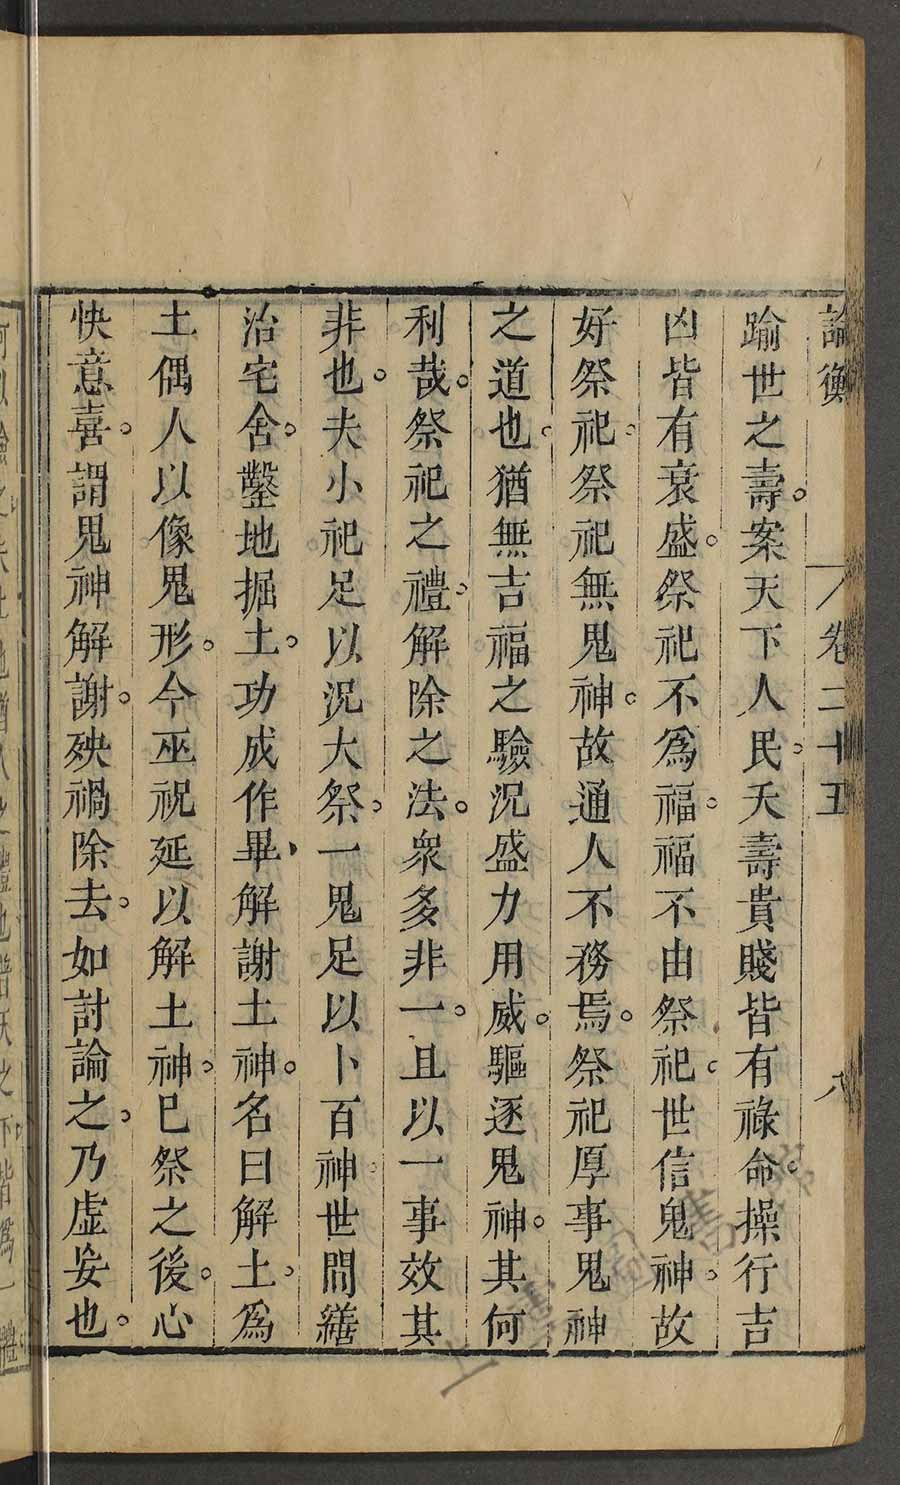 論衡 卷二十五 八
踰世之壽。案天下人民。夭壽貴賤皆有祿命。操行吉
凶皆有衰盛。祭祀不爲福。福不由祭祀。世信鬼神。故
好祭祀。祭祀無鬼神。故通人不務焉。祭祀厚事鬼神
之道也。猶無吉福之驗況盛力用威。驅逐鬼神。其何
利哉。祭祀之禮。解除之法。衆多非一。且以一事效其
非也。夫小祀足以況大祭。一鬼足以卜百神。世間繕
治宅舍。鑿地掘土。功成作畢、解謝土神。名曰解土。爲
土偶人以像鬼形。令巫祝延以解土神。已祭之後。心
快意喜。謂鬼神解謝。殃禍除去。如討論之。乃虛妄也。